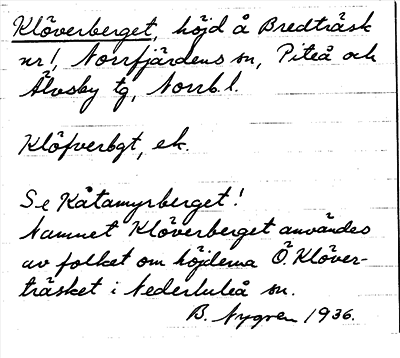 Klöverberget, höjd å Bredträsk
nr 1, Norrfjärdens sn, Piteå och
Älvsby tg, Norrb. l.
Klöfverbgt, ek.
Se Kåtamyrberget!
Namnet Klöverberget användes
av folket om höjderna Ö. Klöver-
träsket i Nederluleå sn.
B. Nygren 1936.